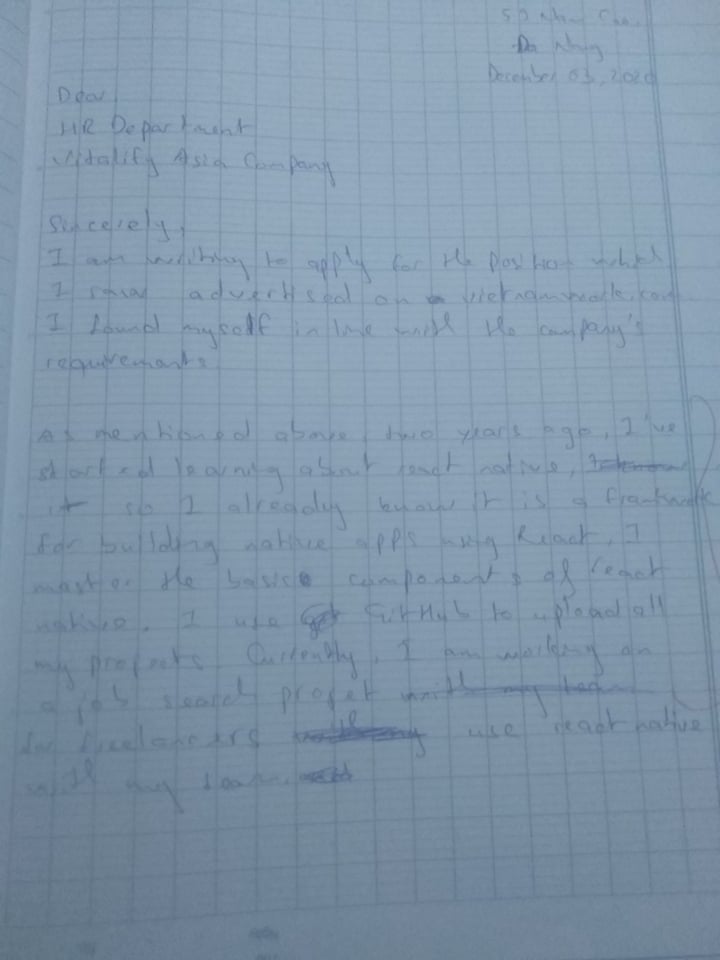 Da Nang
December 03, 2020
Dear
HR Department
Vitalify Asia Company
Sincerely,
I am writing to apply for the position which
I saw advertised on vietnamwork.com
I found myself in line with the company's
requirements
As mentioned above, two years ago, I've
started learning about react native,
it so I already know it is a framework
for building native apps using React, I
master the basic components of react
native. I use GitHub to upload all
my projects Currently, I am working on
a job search project with my team
for freelancers use react native
with my team.